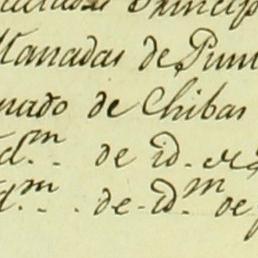 Princip
Manadas de Pun
nado de Chibas
Id.m - de id.
Id.m - - de - id.m de